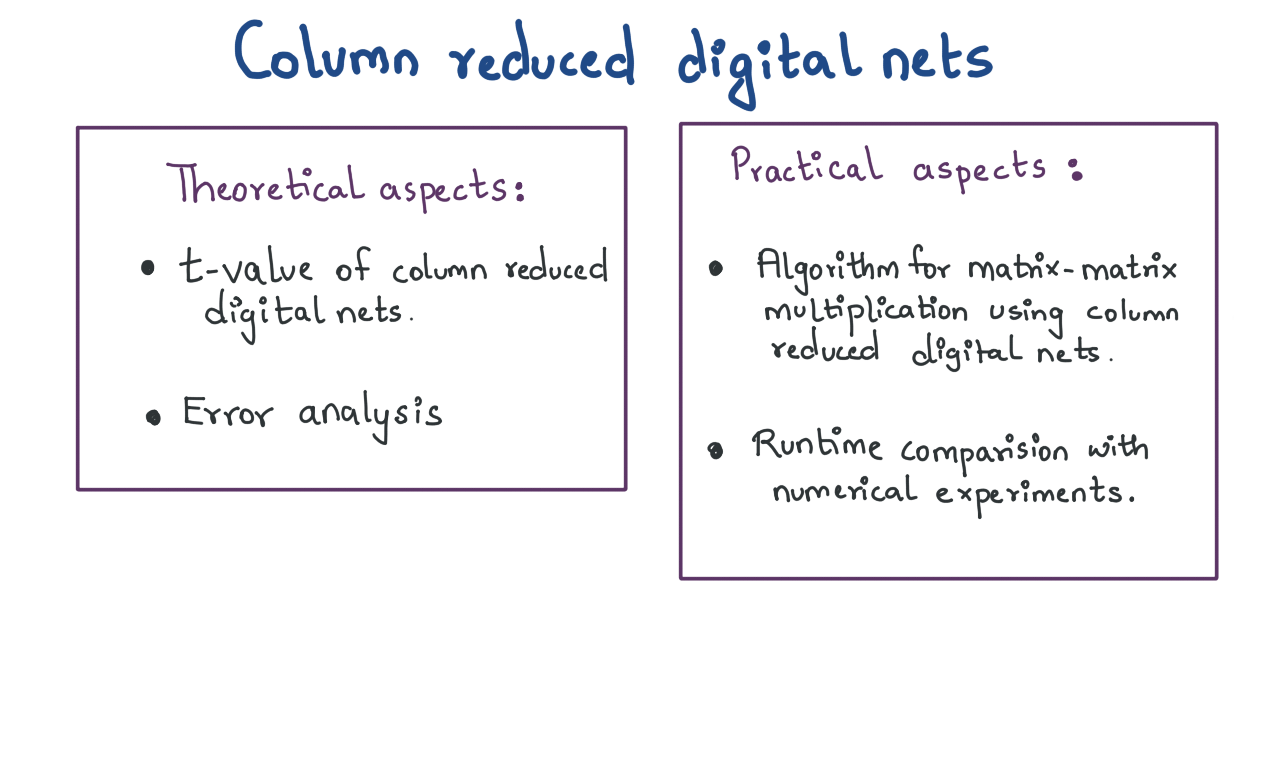 Column reduced digital nets
Theoretical aspects:
• t-value of column reduced
digital nets.
• Error analysis
Practical aspects :
• Algorithm for matrix-matrix
multiplication using column
reduced digital nets.
• Runtime comparision with
numerical experiments.